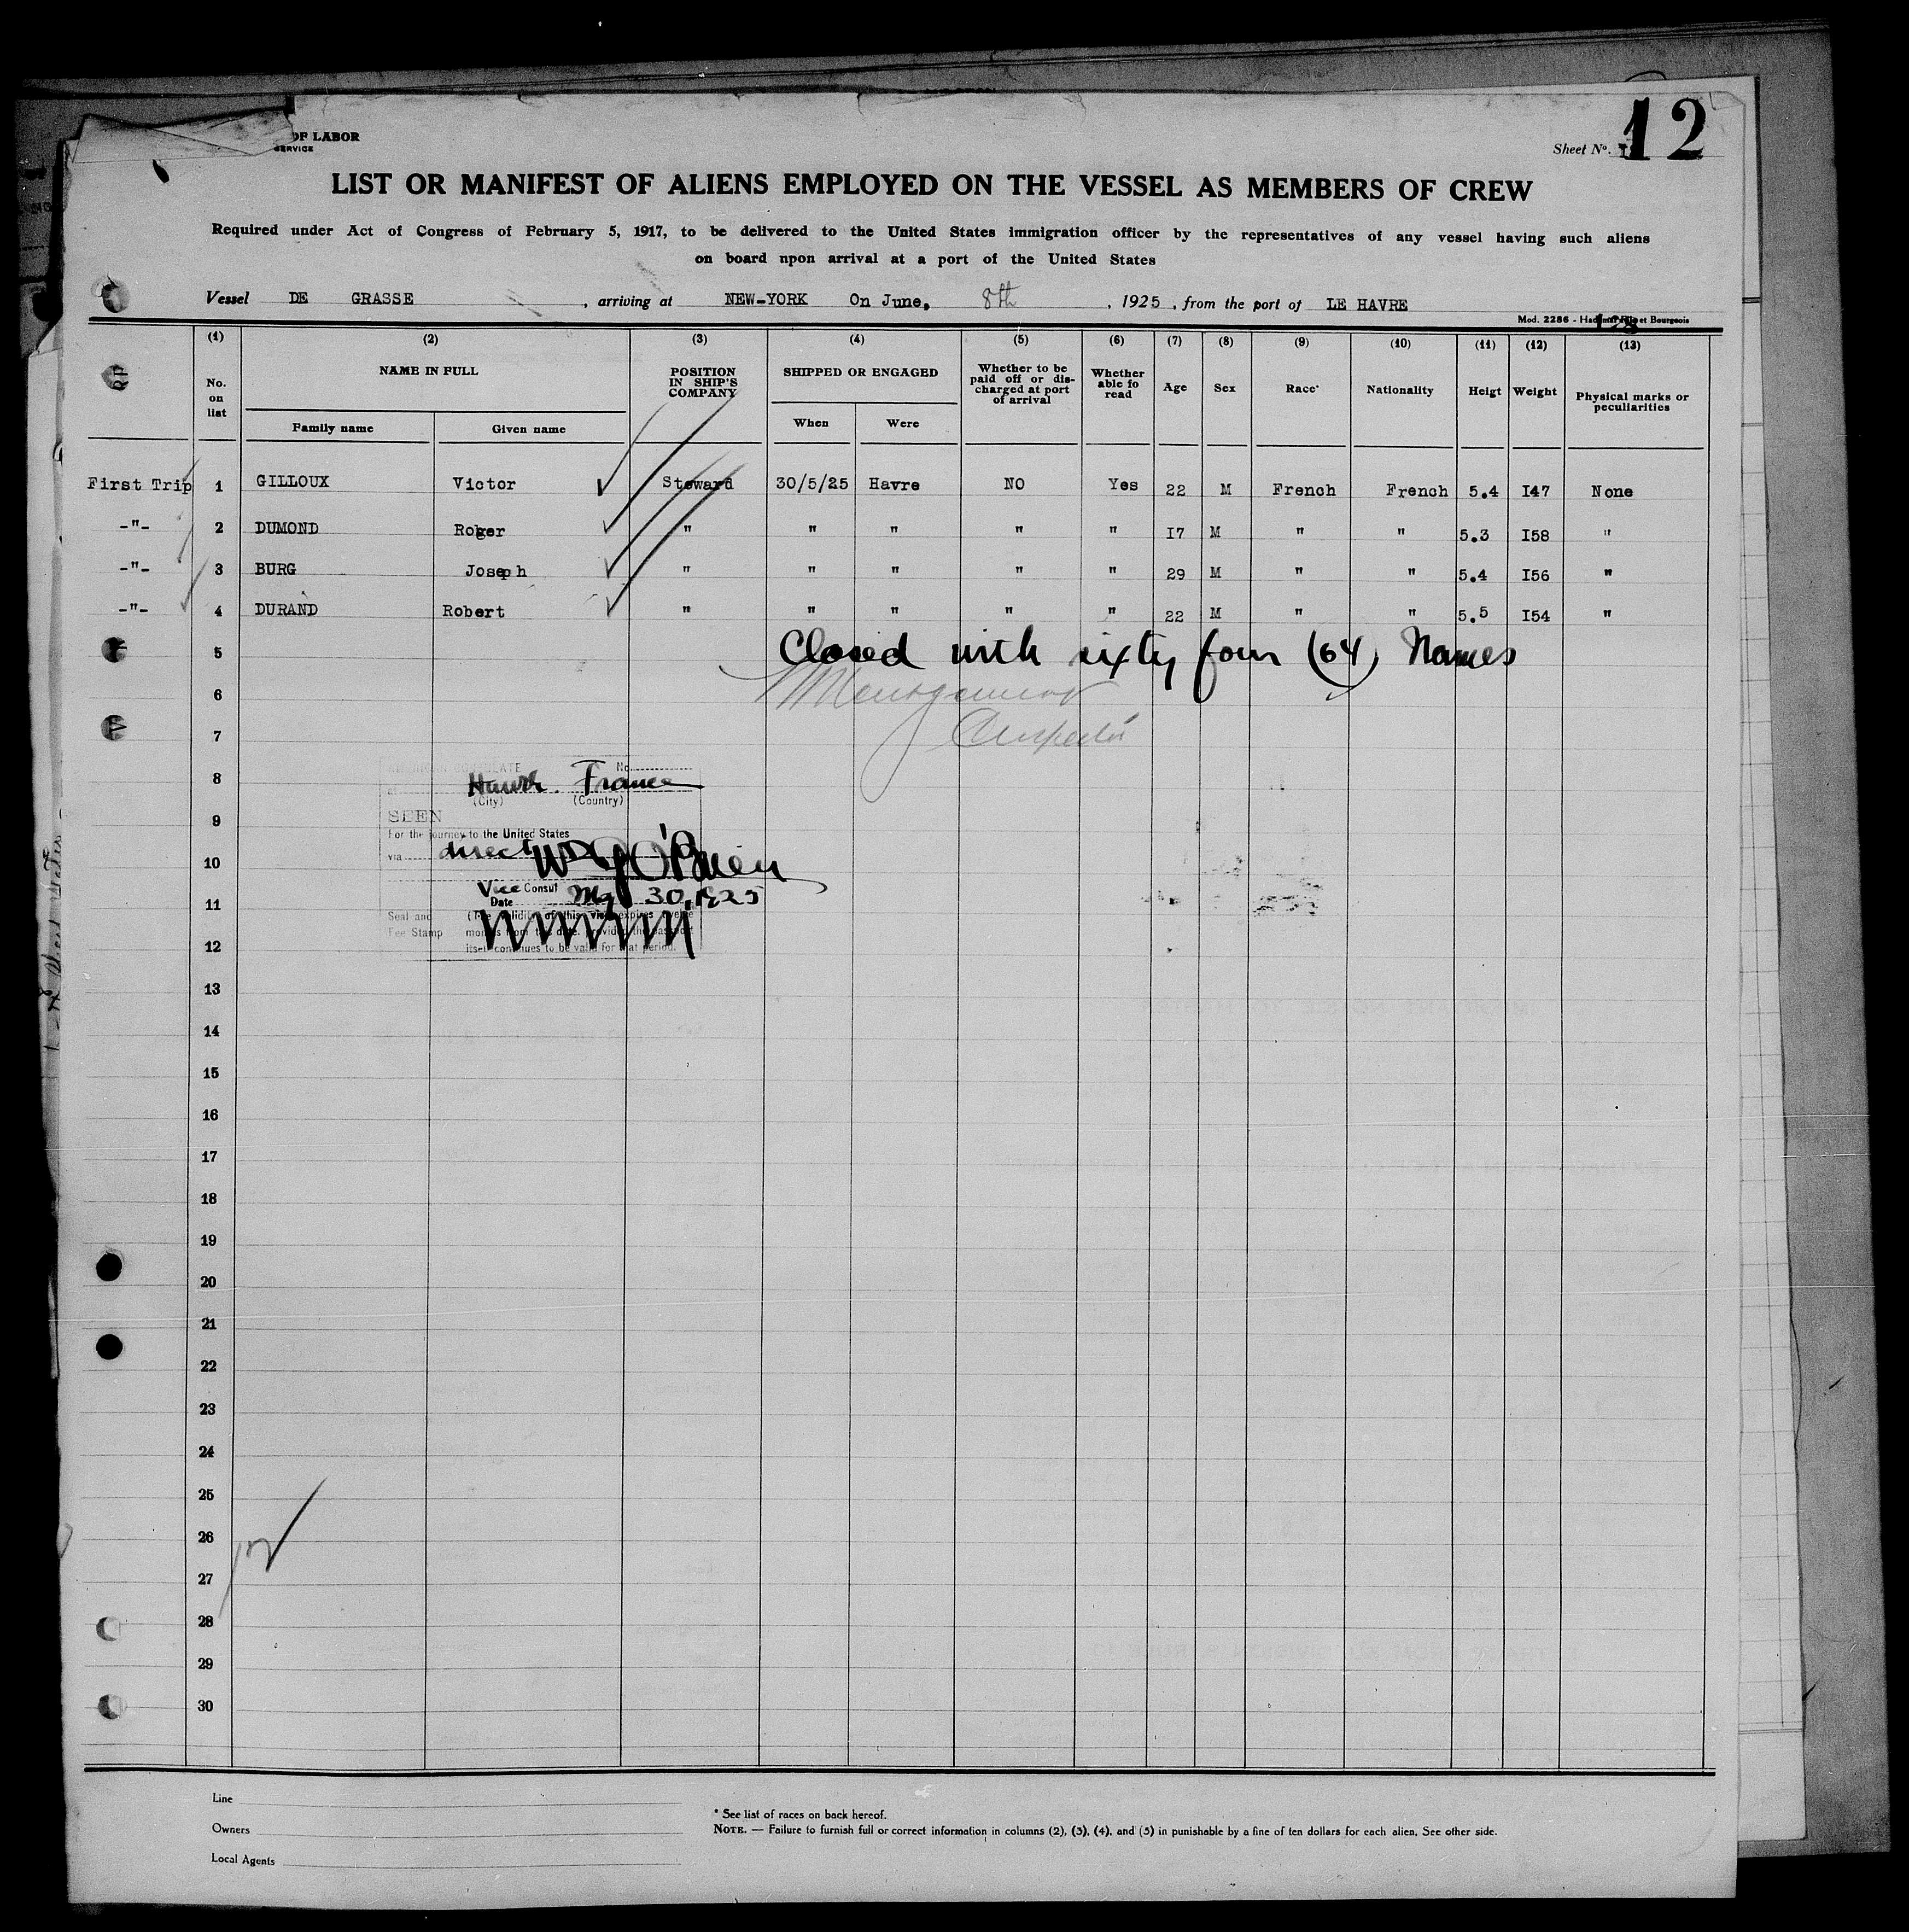 OF LABOR
SERVICE
Sheet No. 12
LIST OR MANIFEST OF ALIENS EMPLOYED ON THE VESSEL AS MEMBERS OF CREW
Required under Act of Congress of February 5, 1917, to be delivered to the United States immigration officer by the representatives of any vessel having such aliens
on board upon arrival at a port of the United States
Vessel DE GRASSE , arriving at NEW-YORK On June, 8th , 1925 , from the port of LE HAVRE
Mod. 2286 - et Bourgeois
(1) (2) (3) (4) (5) (6) (7) (8) (9) (10) (11) (12) (13)
No. on list NAME IN FULL POSITION IN SHIP'S COMPANY SHIPPED OR ENGAGED Whether to be paid off or discharged at port of arrival Whether able fo read Age Sex Race* Nationality Heigt Weight Physical marks or peculiarities
Family name Given name When Were
First Trip 1 GILLOUX Victor Steward 30/5/25 Havre NO Yes 22 M French French 5.4 I47 None
-"- 2 DUMOND Roger " " " " " I7 M " " 5.3 I58 "
-"- 3 BURG Joseph " " " " " 29 M " " 5.4 I56 "
-"- 4 DURAND Robert " " " " " 22 M " " 5.5 I54 "
Closed with sixty four (64) Names
5
6 Montgomery
7 Inspector
8
CONSULATE No.
at Havre. France
(City) (Country)
9
SEEN
For the journey to the United States
10
via direct
W O'Brien
Vice Consul
11
Date May 30, 1925
Seal and (The validity of this visa expires twelve
Fee Stamp months from this date, provided the passport
12
itself continues to be valid for that period.
13
14
15
16
17
18
19
20
21
22
23
24
25
26
27
28
29
30
Line
Owners
Local Agents
* See list of races on back hereof.
NOTE. — Failure to furnish full or correct information in columns (2), (3), (4), and (5) in punishable by a fine of ten dollars for each alien, See other side.